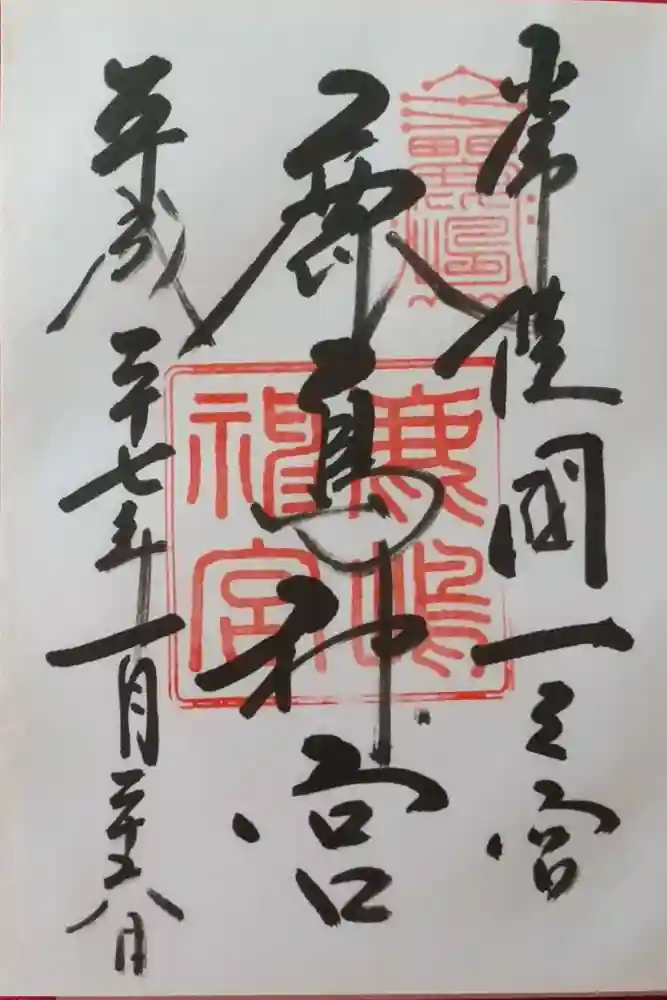 常陸國一之宮
鹿島神宮
鹿嶋神宮
平成二十七年一月二十八日